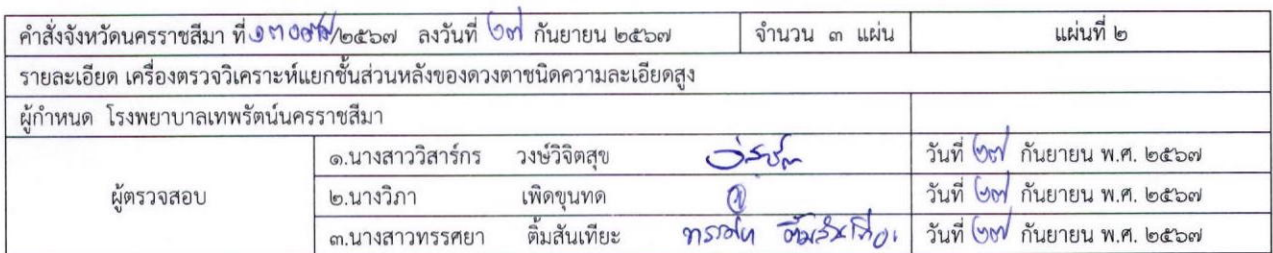 คำสั่งจังหวัดนครราชสีมา ที่ /๒๕๖๗ ลงวันที่ ๒๗ กันยายน ๒๕๖๗ จำนวน ๓ แผ่น แผ่นที่ ๒
รายละเอียด เครื่องตรวจวิเคราะห์แยกชั้นส่วนหลังของดวงตาชนิดความละเอียดสูง
ผู้กำหนด โรงพยาบาลเทพรัตน์นครราชสีมา
๑.นางสาววิสาร์กร วงษ์วิจิตสุข วันที่ ๒๗ กันยายน พ.ศ. ๒๕๖๗
ผู้ตรวจสอบ ๒.นางวิภา เพิดขุนทด วันที่ ๒๗ กันยายน พ.ศ. ๒๕๖๗
๓.นางสาวทรรศยา ติ้มสันเทียะ วันที่ ๒๗ กันยายน พ.ศ. ๒๕๖๗